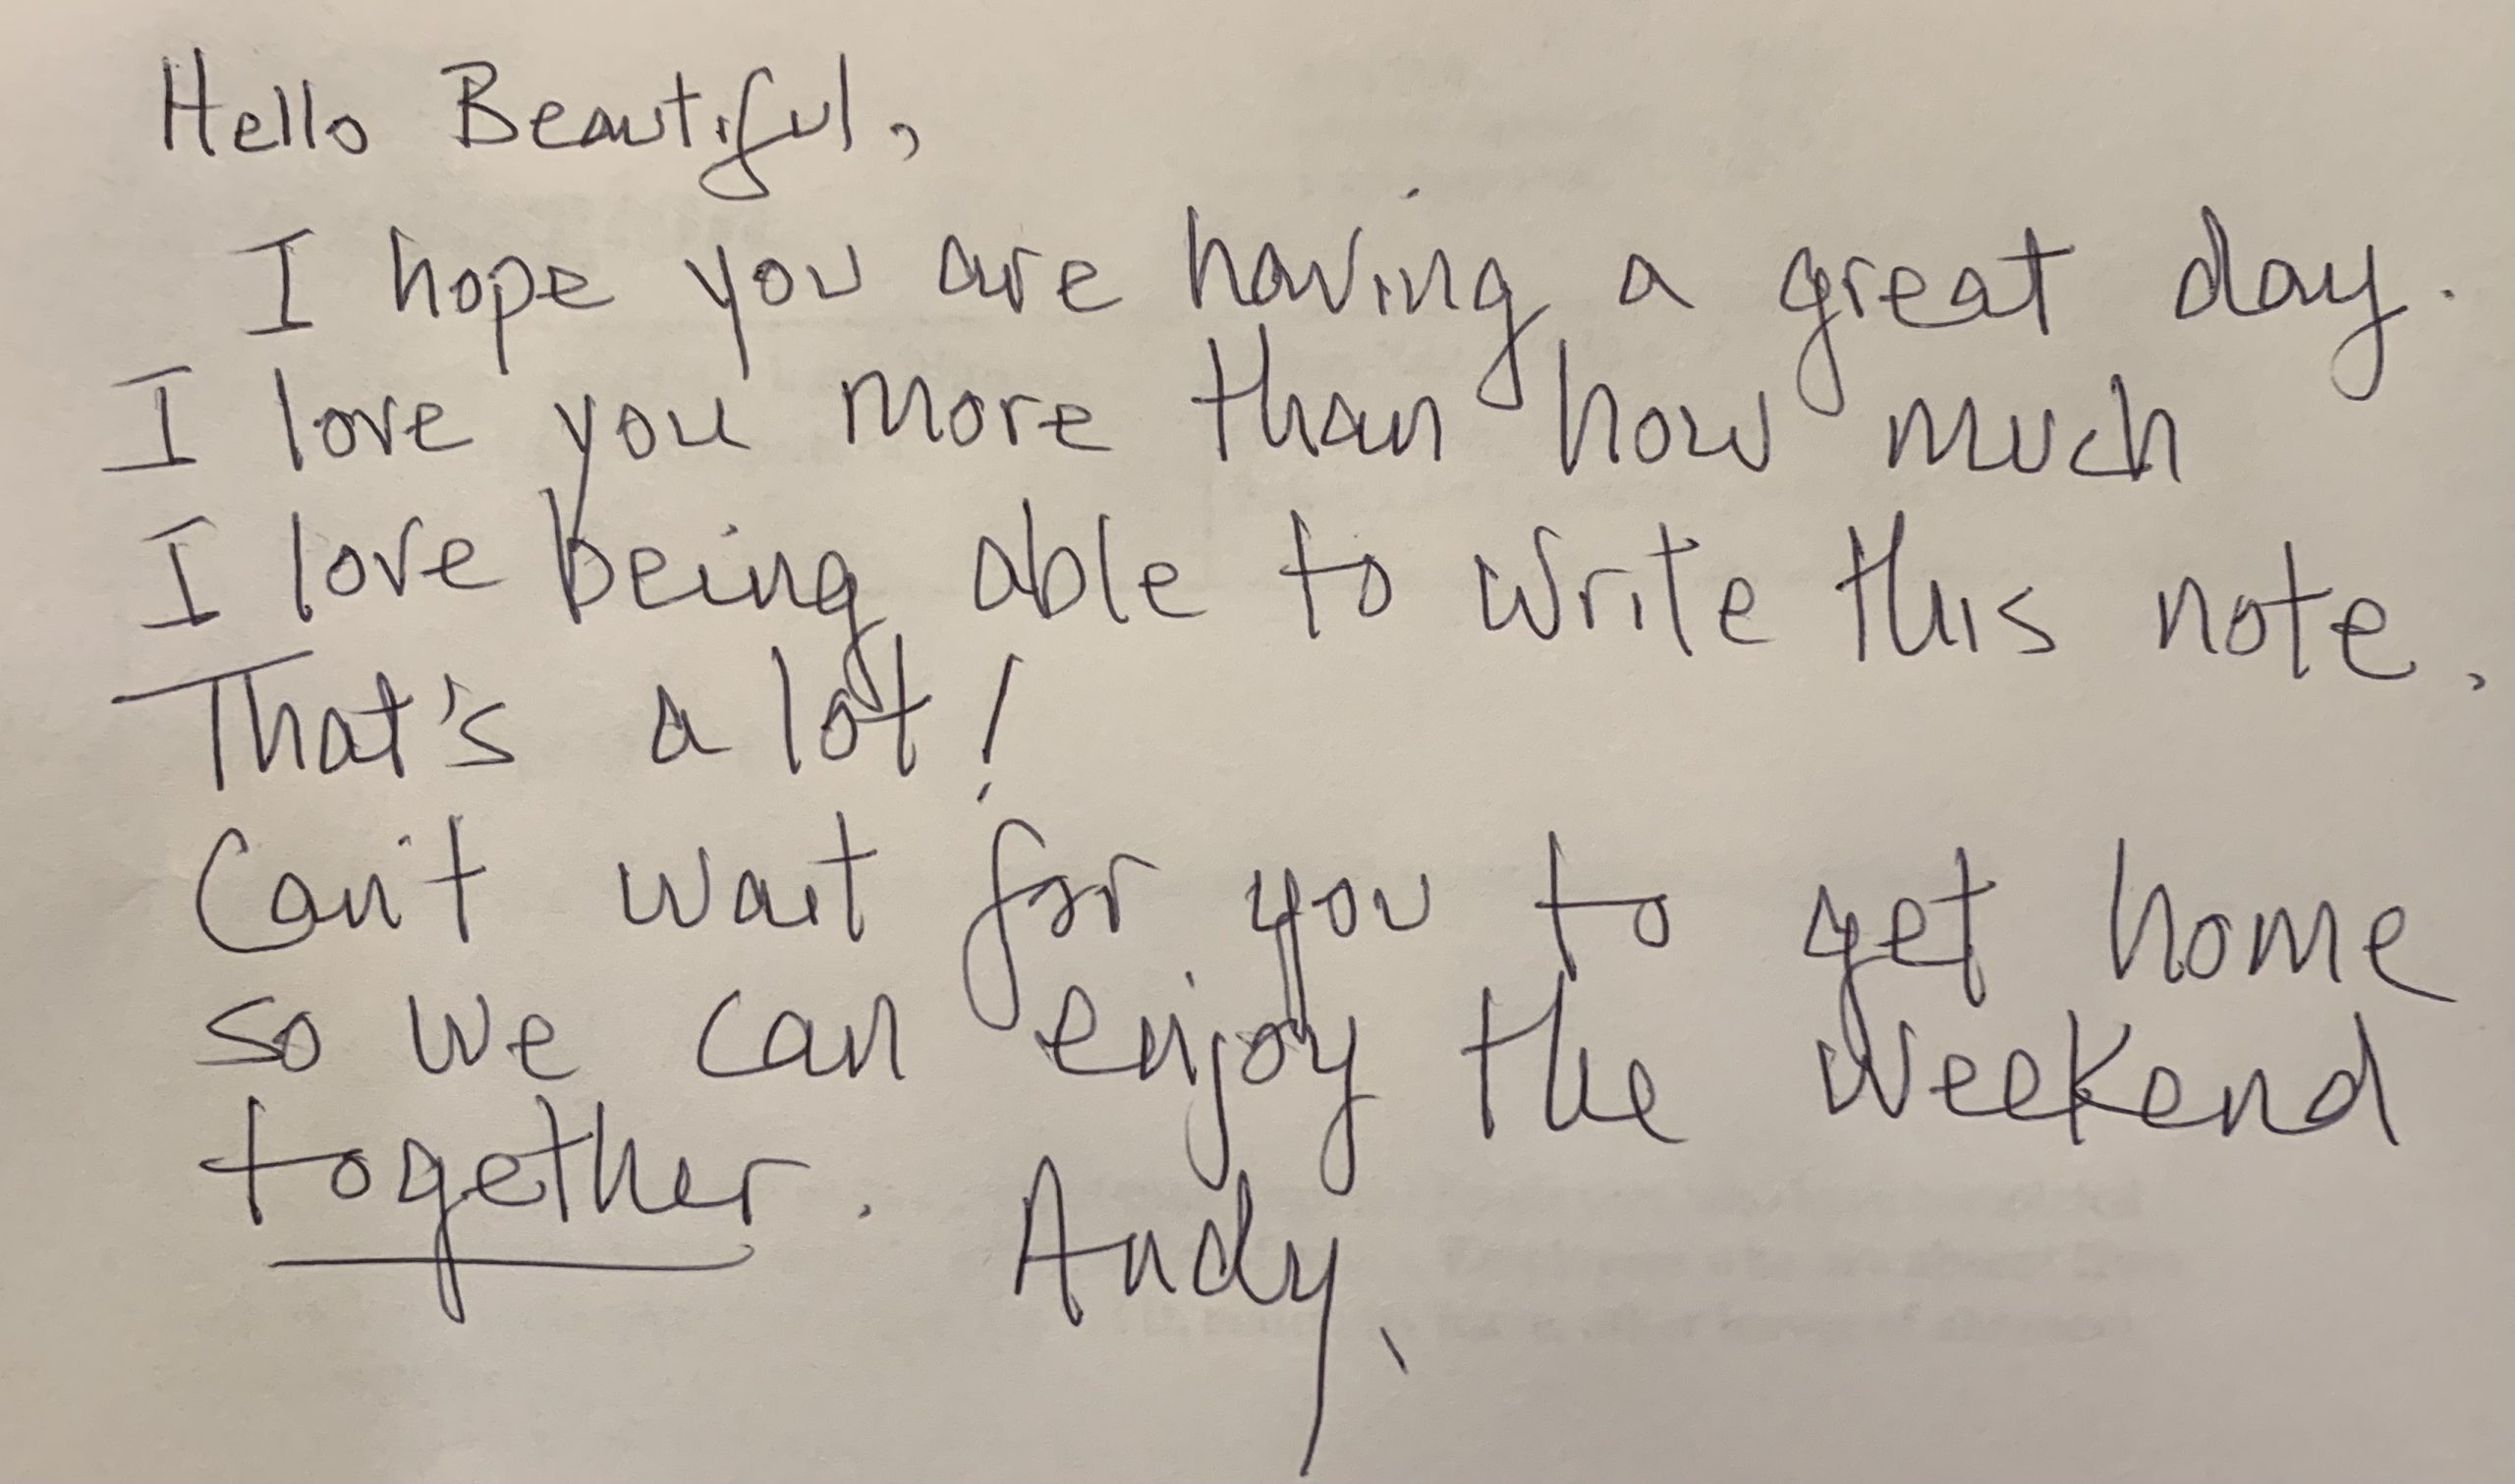 Hello Beautiful,
I hope you are having a great day.
I love you more than how much
I love being able to write this note.
That's a lot!
Can't wait for you to get home
so we can enjoy the weekend
together. Andy.